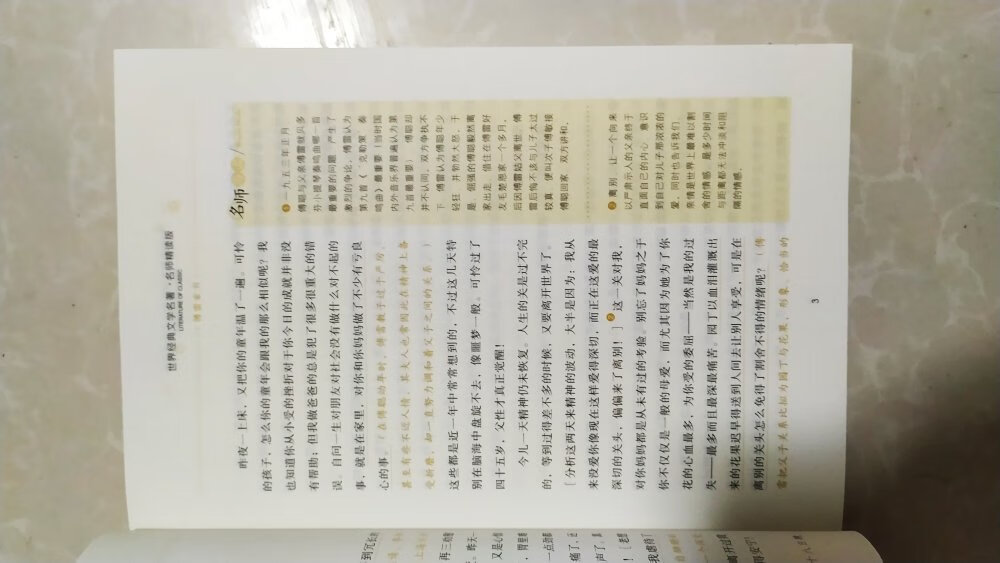 世界经典文学名著·名师精读版
LITERATURE OF CLASSIC
傅雷家书
昨夜一上床，又把你的童年温了一遍。可怜
的孩子，怎么你的童年会跟我的那么相似呢？我
也知道你从小受的挫折对于你今日的成就并非没
有帮助；但我做爸爸的总是犯了很多很重大的错
误。自问一生对朋友对社会没有做什么对不起的
事，就是在家里，对你和你妈妈做了不少有亏良
心的事。（在傅聪幼年时，傅雷教子过于严厉，
甚至有些不近人情，其夫人也常因此在精神上备
受折磨，却一直努力调和着父子之间的关系。）
这些都是近一年中常常想到的，不过这几天特
别在脑海中盘旋不去，像噩梦一般。可怜过了
四十五岁，父性才真正觉醒！
今儿一天精神仍未恢复。人生的关是过不完
的，等到过得差不多的时候，又要离开世界了。
［分析这两天来精神的波动，大半是因为：我从
来没爱你像现在这样爱得深切，而正在这爱的最
深切的关头，偏偏来了离别！］❷这一关对我，
对你妈妈都是从未有过的考验。别忘了妈妈之于
你不仅仅是一般的母爱，而尤其因为她为了你
花的心血最多，为你受的委屈——当然是我的过
失——最多而且最深最痛苦。园丁以血泪灌溉出
来的花果迟早得送到人间去让别人享受，可是在
离别的关头怎么免得了割舍不得的情绪呢？（傅
雷把父子关系比拟为园丁与花果，形象、恰当的
名师
❶一九五三年正月
傅聪与父亲傅雷就贝多
芬小提琴奏鸣曲哪一首
最重要的问题，产生了
激烈的争论，傅雷认为
第九首《克勒策》奏
鸣曲》最重要（当时国
内外音乐界普遍认为第
九首最重要），傅聪却
并不认同，双方争执不
下。傅雷认为傅聪年少
轻狂，并勃然大怒，于
是，倔强的傅聪毅然离
家出走，借住在傅雷好
友毛楚恩家一个多月。
后因傅雷姑父离世，傅
雷后悔不该与儿子太过
较真，便叫次子傅敏接
傅聪回家，双方讲和。
❷离别，让一个向来
以严肃示人的父亲终于
直面自己的内心，意识
到自己对儿子那浓浓的
爱，同时也告诉我们，
亲情是世界上最难以割
舍的情感，是多少时间
与距离都无法冲淡和阻
隔的情感。
3